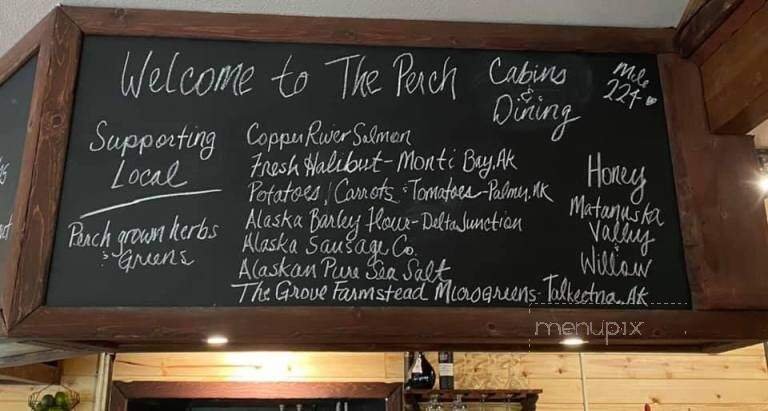 Welcome to The Perch
Cabins
&
Dining
Mile
224
Supporting
Local
Perch grown herbs
& Greens
Copper River Salmon
Fresh Halibut - Monti Bay, AK
Potatoes / Carrots & Tomatoes - Palmer, AK
Alaska Barley flour - Delta Junction
Alaska Sausage Co.
Alaskan Pure Sea Salt
The Grove Farmstead Microgreens - Talkeetna, AK
Honey
Matanuska
Valley
&
Willow
menupix